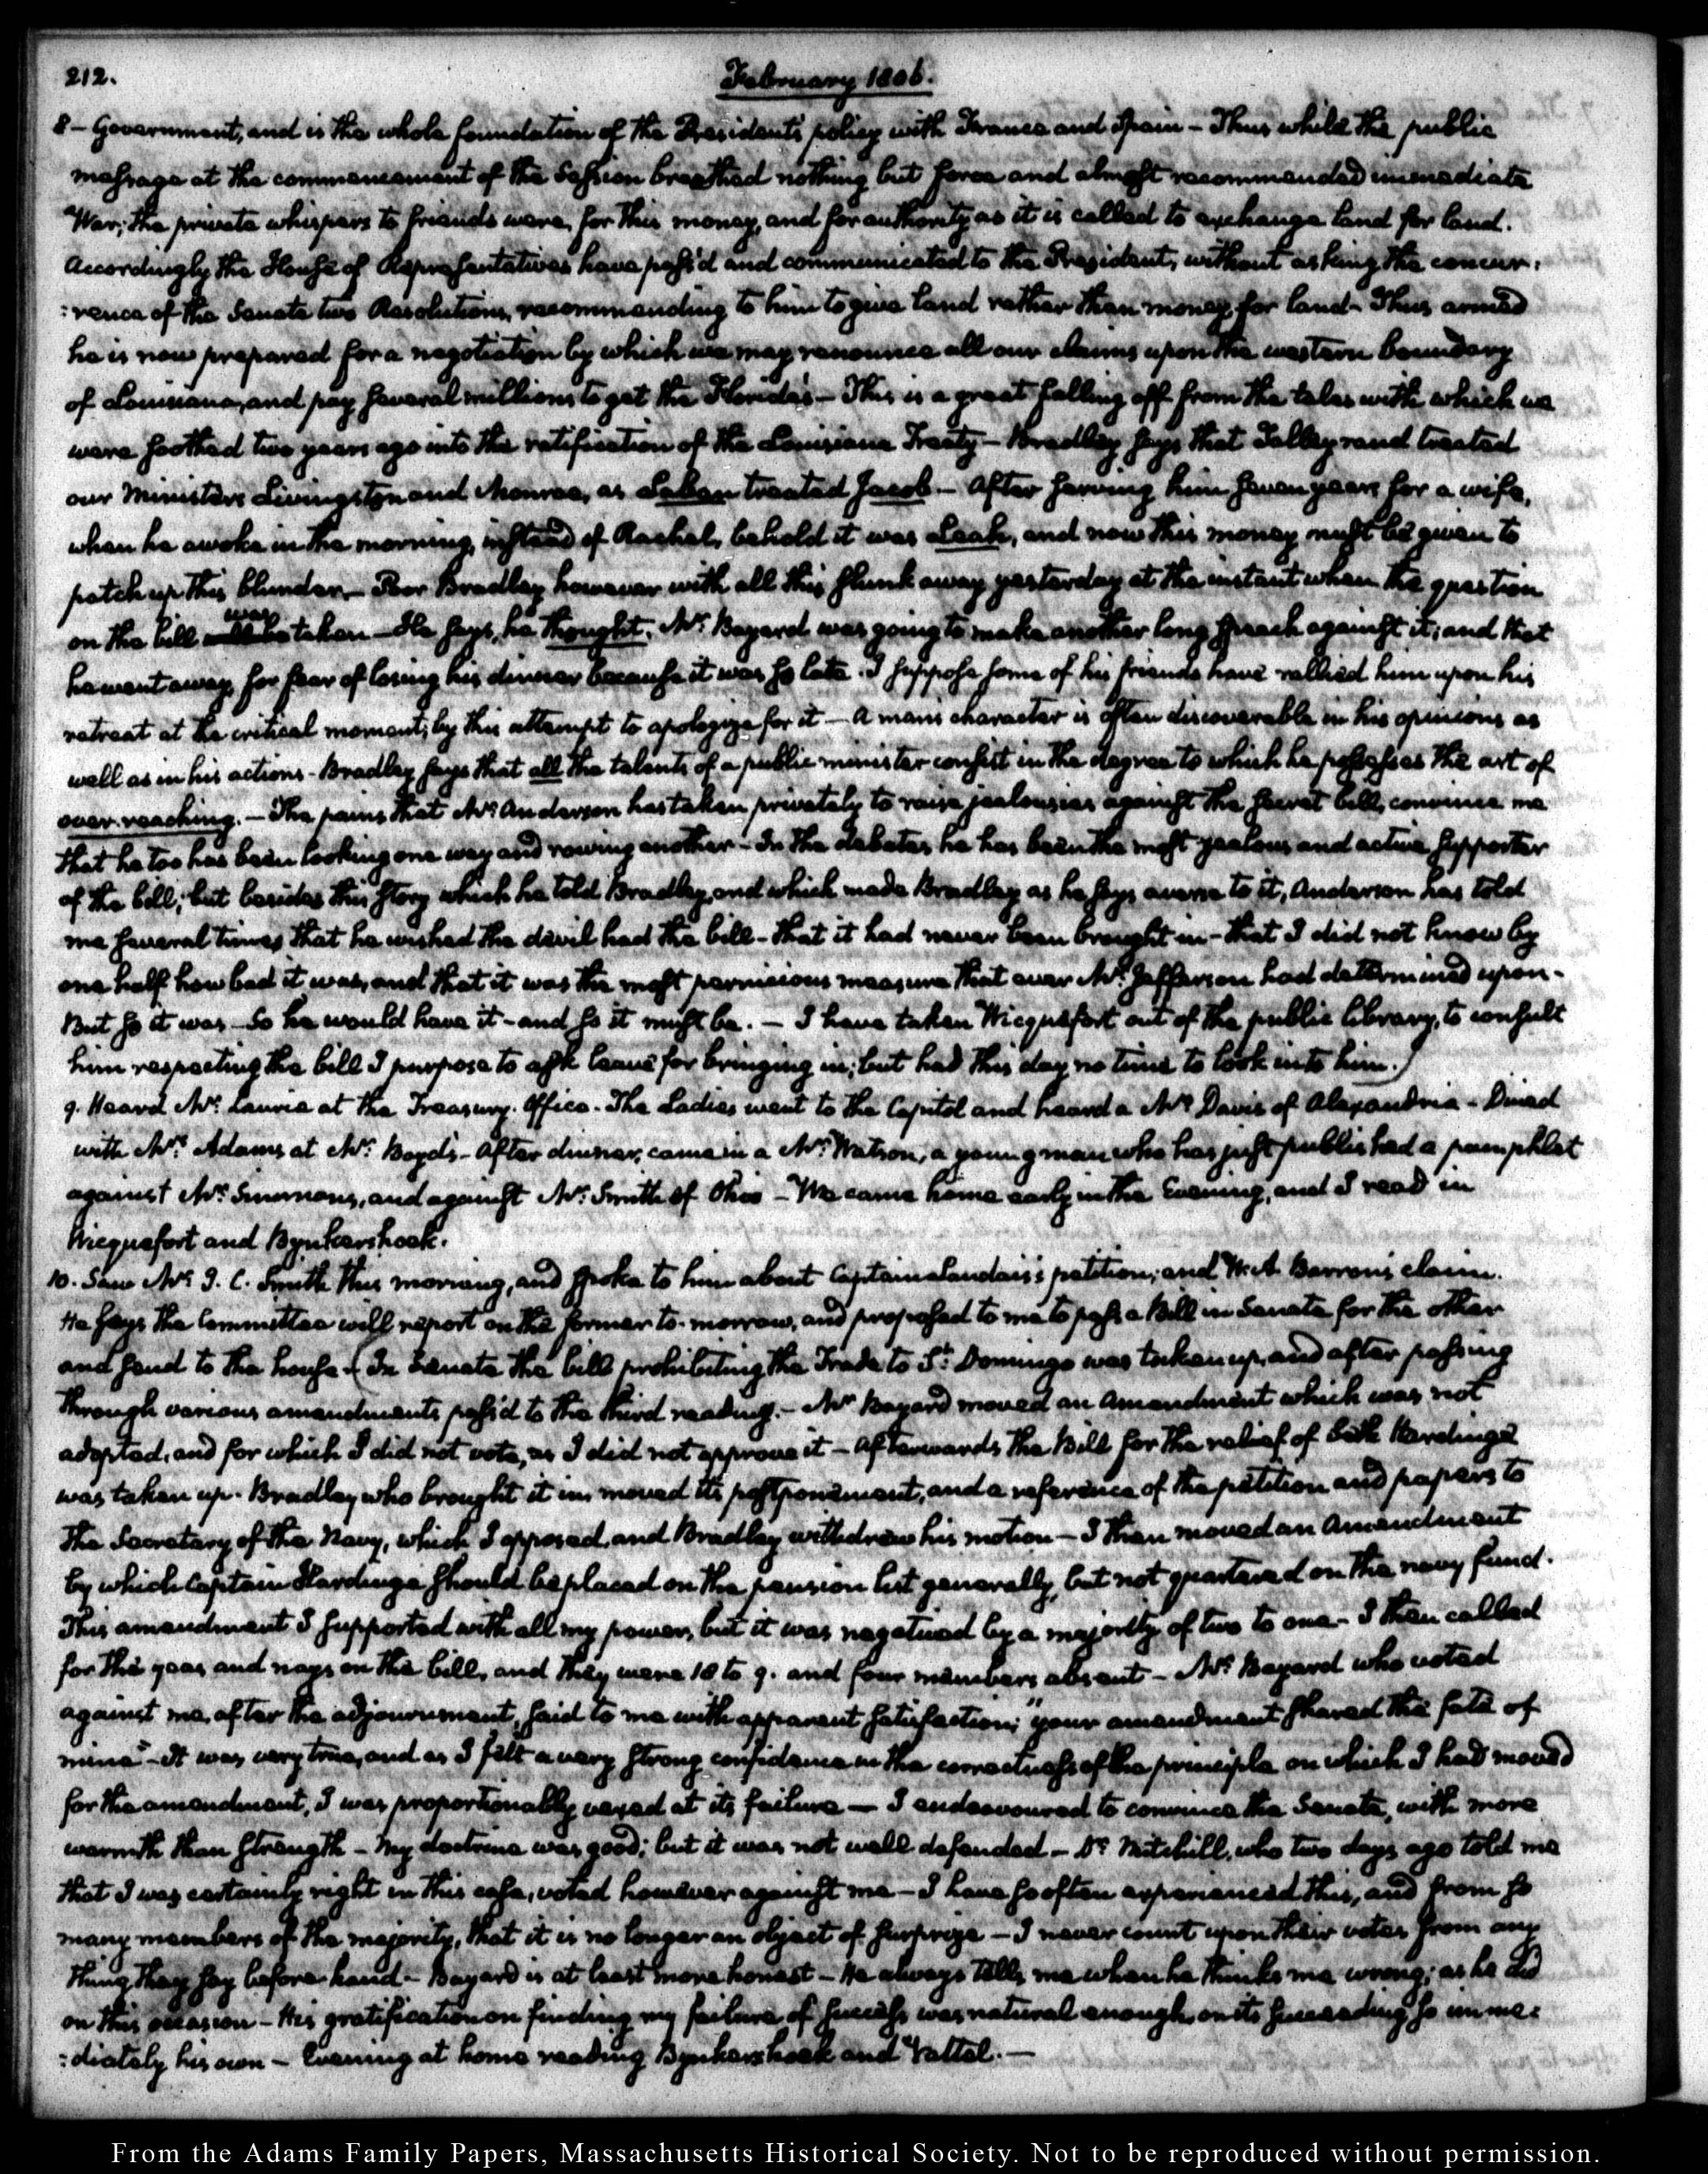 212.
February 1806.
8 - Government, and is the whole foundation of the President's policy with France and Spain - Thus while the public
message at the commencement of the Session breathed nothing but force and almost recommended immediate
War; the private whispers to friends were, for this money, and for authority as it is called to exchange land for land.
Accordingly the House of Representatives have pass'd and communicated to the President, without asking the concur:
:rence of the Senate two Resolutions, recommending to him to give land rather than money, for land - Thus armed
he is now prepared for a negotiation by which we may renounce all our claims upon the western boundary
of Louisiana, and pay several millions to get the Florida's - This is a great falling off from the tales with which we
were soothed two years ago into the ratification of the Louisiana Treaty - Bradley says that Talleyrand treated
our Ministers Livingston and Monroe, as Laban treated Jacob - After serving him seven years for a wife,
when he awoke in the morning, instead of Rachel, behold it was Leah, and now this money must be given to
patch up this blunder. - Poor Bradley however with all this slunk away yesterday at the instant when the question
on the bill was taken - He says, he thought, Mr. Bayard was going to make another long speech against it; and that
he went away for fear of losing his dinner because it was so late. I suppose some of his friends have rallied him upon his
retreat at the critical moment, by this attempt to apologize for it - A man's character is often discoverable in his opinions as
well as in his actions - Bradley says that all the talents of a public minister consist in the degree to which he possesses the art of
over-reaching. - The pains that Mr. Anderson has taken privately to raise jealousies against the secret bill, convince me
that he too has been looking one way and rowing another - In the debates he has been the most zealous and active supporter
of the bill; but besides this story which he told Bradley, and which made Bradley as he says averse to it, Anderson has told
me several times that he wished the devil had the bill - that it had never been brought in - that I did not know by
one half how bad it was, and that it was the most pernicious measure that ever Mr. Jefferson had determined upon -
But so it was - So he would have it - and so it must be. - I have taken Wicquefort out of the public library, to consult
him respecting the bill I purpose to ask leave for bringing in; but had this day no time to look into him.)
9. Heard Mr. Laurie at the Treasury Office - The Ladies went to the Capitol and heard a Mr. Davis of Alexandria - Dined
with Mrs. Adams at Mr. Boyd's - After dinner, came in a Mr. Watson, a young man who has just published a pamphlet
against Mr. Simmons, and against Mr. Smith of Ohio - We came home early in the Evening, and I read in
Wicquefort and Bynkershoek.
10. Saw Mr. J. C. Smith this morning, and spoke to him about Captain Landais's petition; and W. A. Barron's claim.
He says the Committee will report on the former to-morrow, and proposed to me to pass a Bill in Senate for the other
and send to the house - (In Senate the bill prohibiting the Trade to St. Domingo was taken up, and after passing
through various amendments pass'd to the third reading. - Mr. Bayard moved an Amendment which was not
adopted, and for which I did not vote, as I did not approve it - Afterwards the Bill for the relief of Seth Hardinge
was taken up. Bradley who brought it in, moved its postponement, and a reference of the petition and papers to
the Secretary of the Navy, which I opposed, and Bradley withdrew his motion - I then moved an Amendment
by which Captain Hardinge should be placed on the pension list generally, but not quartered on the navy fund.
This amendment I supported with all my power, but it was negatived by a majority of two to one - I then called
for the yeas and nays on the bill, and they were 18 to 9. and four members absent - Mr. Bayard who voted
against me, after the adjournment, said to me with apparent satisfaction; "your amendment shared the fate of
mine" - It was very true, and as I felt a very strong confidence in the correctness of the principle on which I had moved
for the amendment, I was proportionably vexed at its failure - I endeavoured to convince the Senate, with more
warmth than strength - My doctrine was good; but it was not well defended - Dr. Mitchill, who two days ago told me
that I was certainly right in this case, voted however against me - I have so often experienced this, and from so
many members of the majority, that it is no longer an object of surprize - I never count upon their votes from any
thing they say before hand - Bayard is at least more honest - He always tells me when he thinks me wrong; as he did
on this occasion - His gratification on finding my failure of success was natural enough, on its succeeding so imme:
:diately his own - Evening at home reading Bynkershoek and Vattel. -
From the Adams Family Papers, Massachusetts Historical Society. Not to be reproduced without permission.